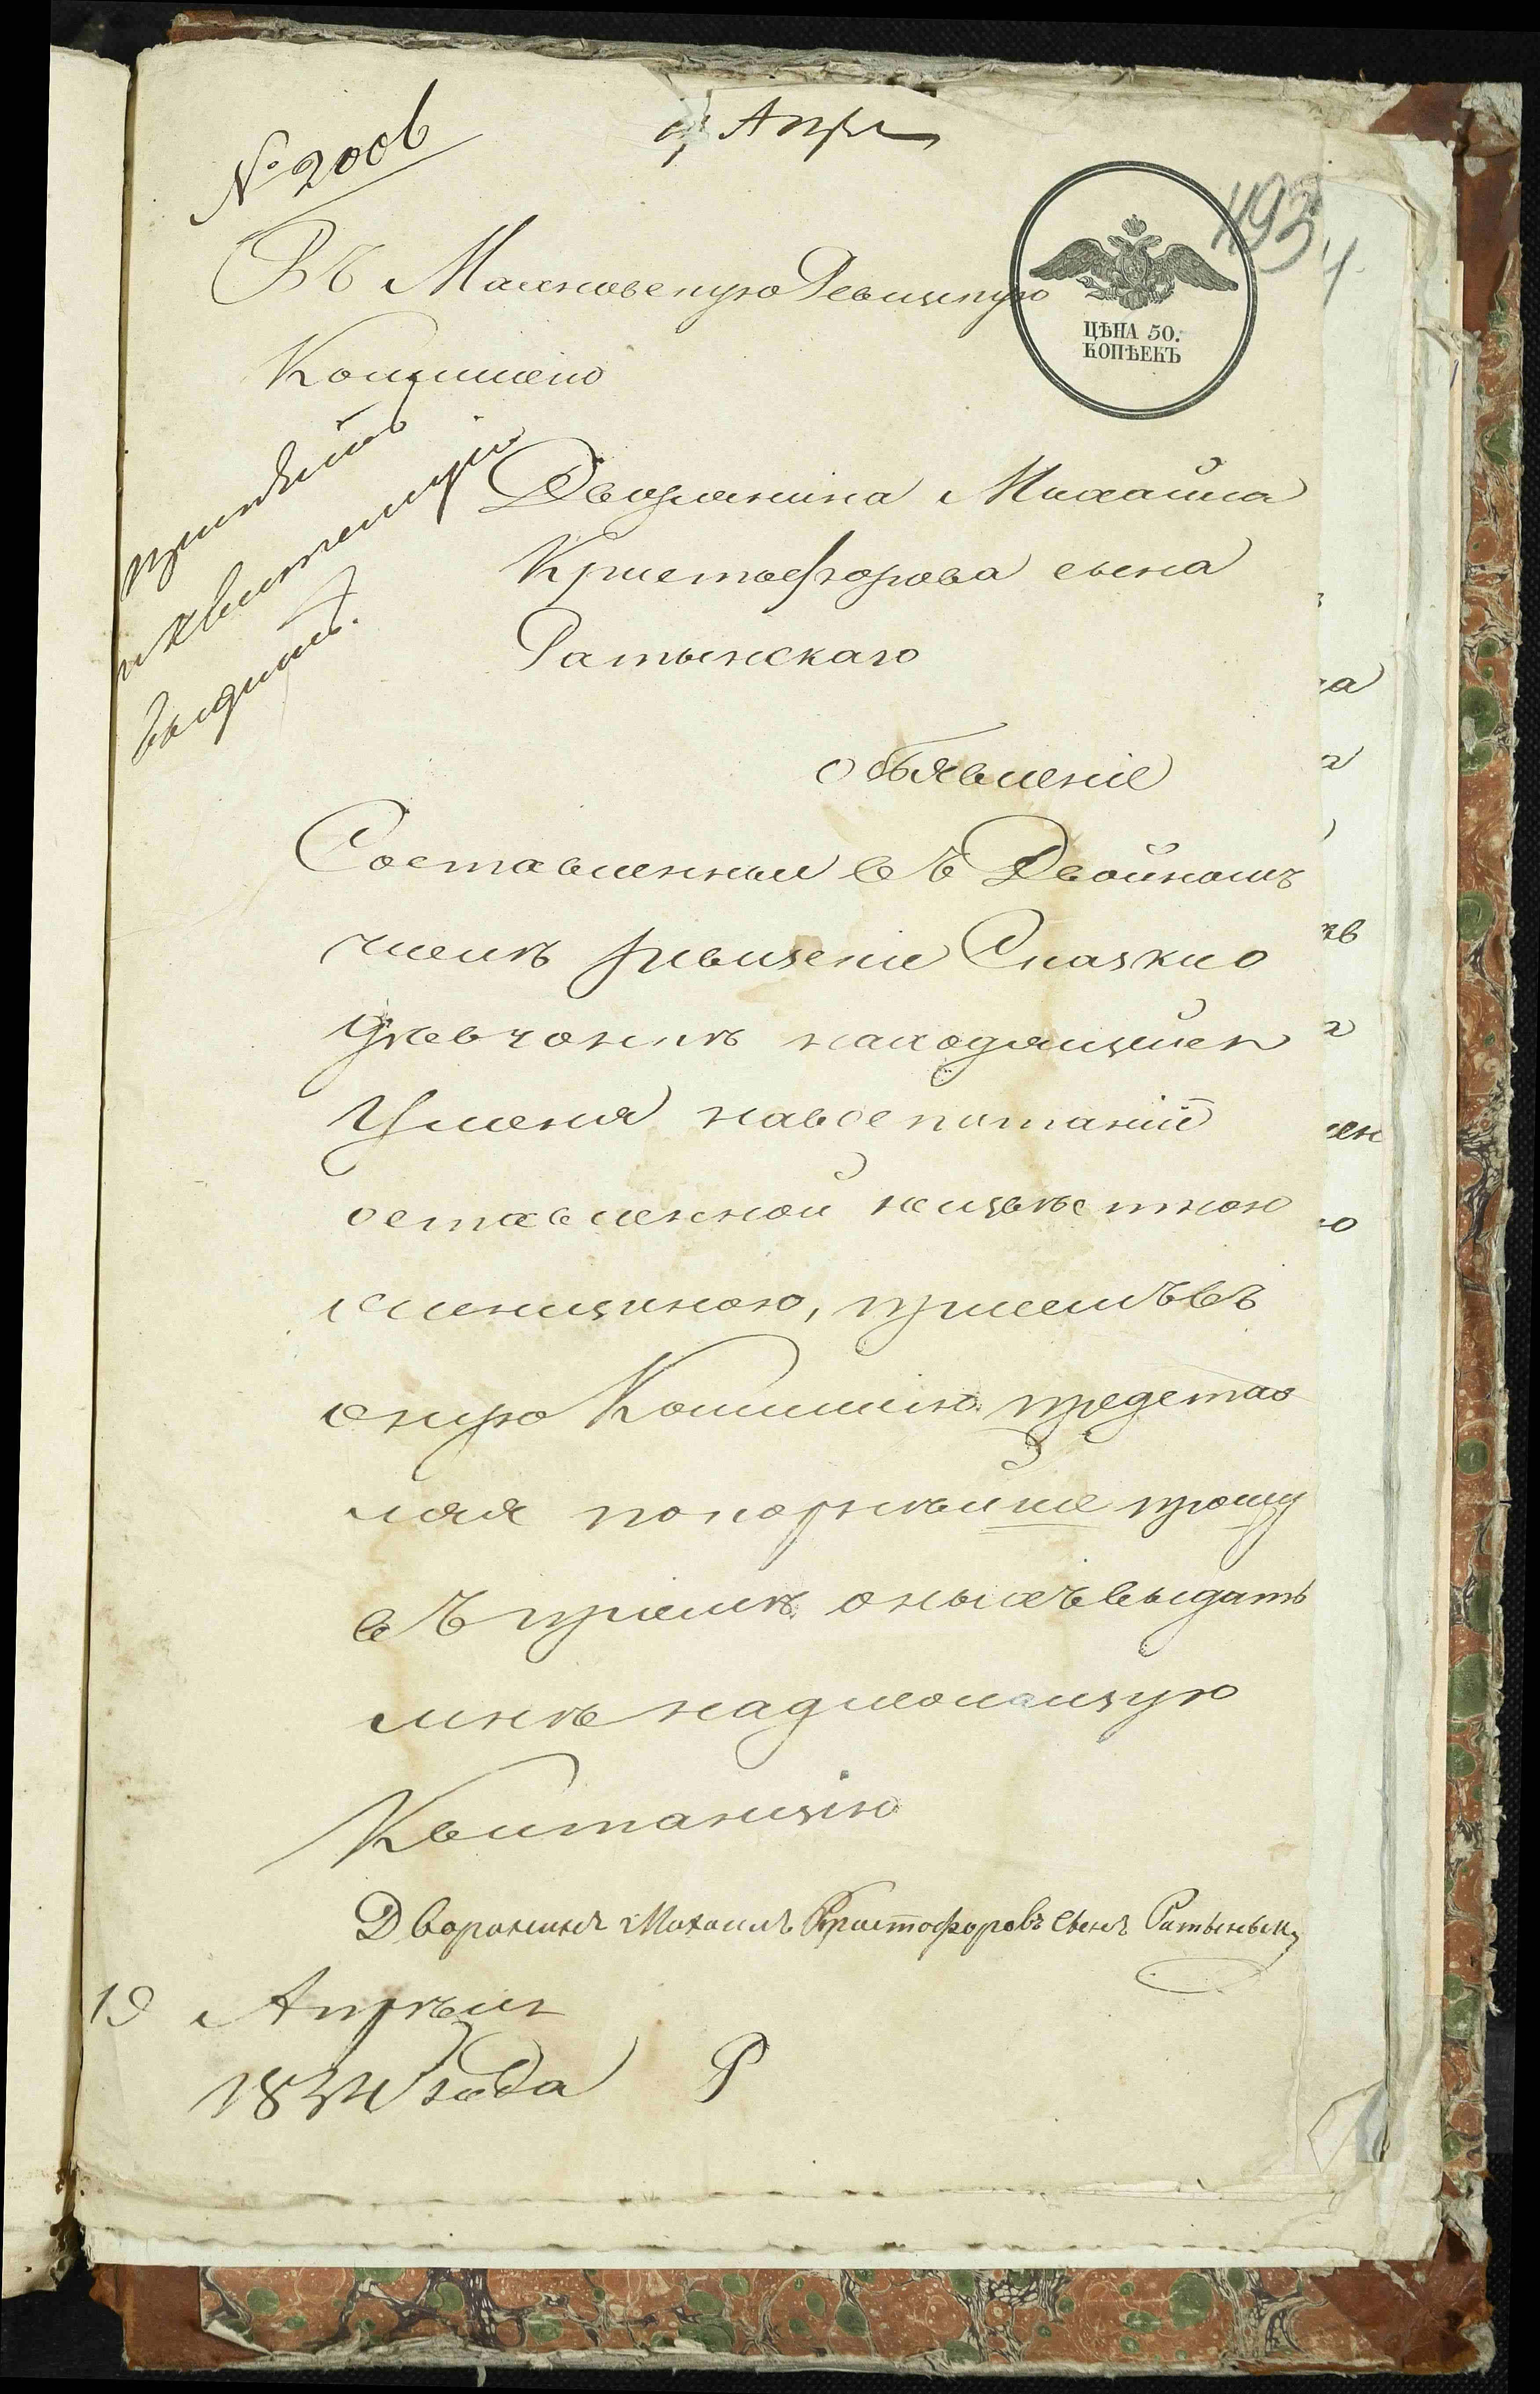 № 2006
19 Апре
493
4
ЦѢНА 50.
КОПѢЕКЪ
Въ Махновскую Ревизкую
Комисію
принять
и квитенцію
выдать.
Дворянина Михайла
Кристофорова сына
Ратынскаго
объявленіе
Составленныя въ Двойномъ
числѣ ревизскіе Сказки о
девчонкѣ находящейся
Уменя навоспитаніи
оставленной неизвѣстною
женщиною, присемъ въ
оную Комисію представ
ляя покорнѣйше прошу
въ пріемѣ оныхъ выдать
мнѣ надлежащую
Квитанцію
Дворянинъ Михаилъ Христофоровъ Сынъ Ратыньски
19 Апрѣля
1834 года
Р